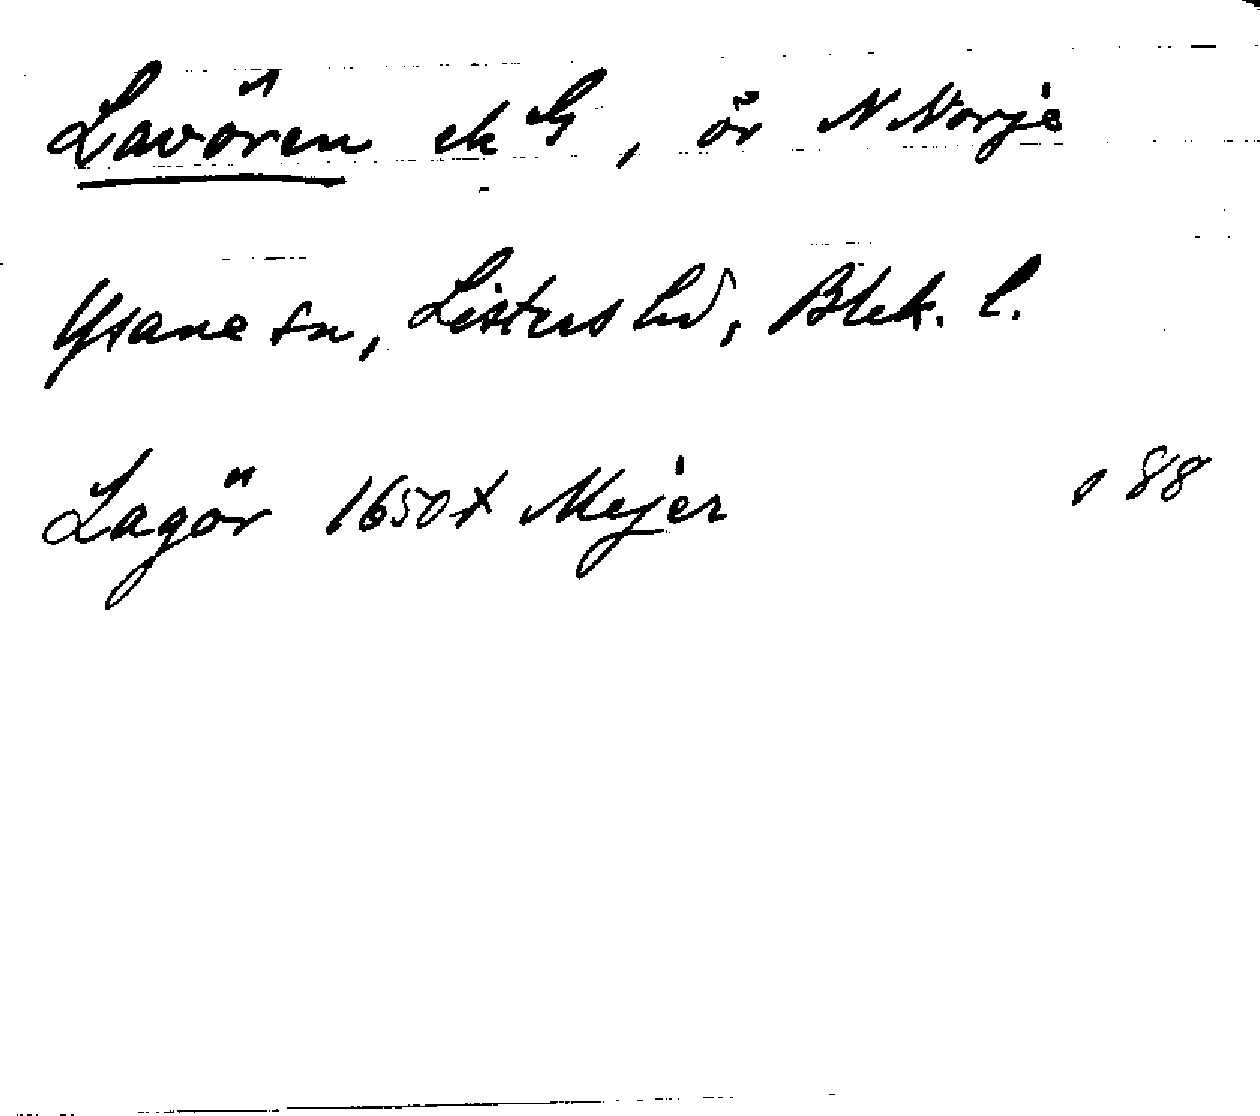 Lavören ek G, ör N Norje
Ysane sn, Listers hd, Blek. l.
Lagör 1650t Mejer 88